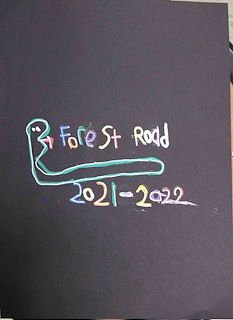 Forest Road
2021-2022